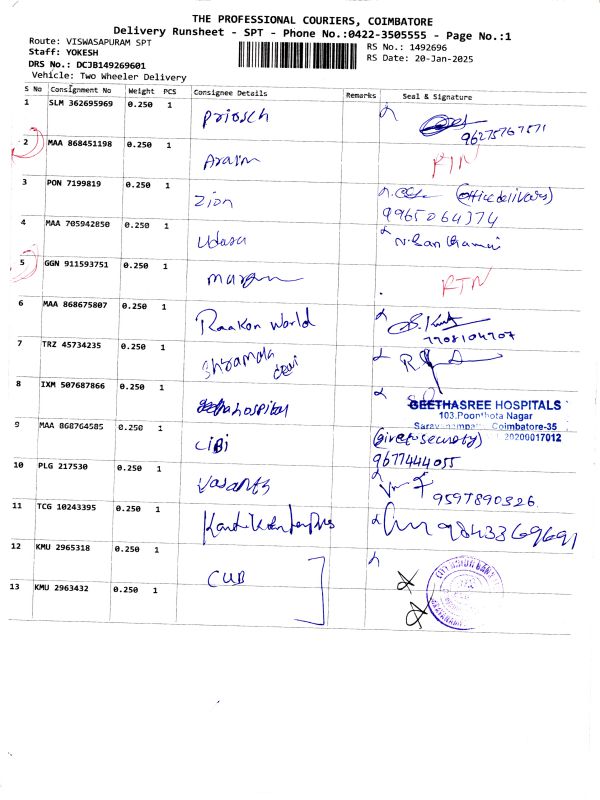 THE PROFESSIONAL COURIERS, COIMBATORE
Delivery Runsheet - SPT - Phone No.:0422-3505555 - Page No.:1
Route: VISWASAPURAM SPT
RS No.: 1492696
Staff: YOKESH
RS Date: 20-Jan-2025
DRS No.: DCJB149269601
Vehicle: Two Wheeler Delivery
S No Consignment No Weight PCS Consignee Details Remarks Seal & Signature
1 SLM 362695969 0.250 1
96275767571
2 MAA 868451198 0.250 1 RTN
3 PON 7199819 0.250 1 Zion (office delivers)
9965064374
4 MAA 705942850 0.250 1
5 GGN 911593751 0.250 1 RTN
6 MAA 868675807 0.250 1 Raakon World
7708104707
7 TRZ 45734235 0.250 1
8 IXM 507687866 0.250 1 hospital
GEETHASREE HOSPITALS
103.Poonthota Nagar
Coimbatore-35
9 MAA 868764585 0.250 1 CiBi (give to security) 20200017012
9677444055
10 PLG 217530 0.250 1 Vasanth
9597890326
11 TCG 10243395 0.250 1 9843369691
12 KMU 2965318 0.250 1 CUB
CITY UNION BANK
13 KMU 2963432 0.250 1